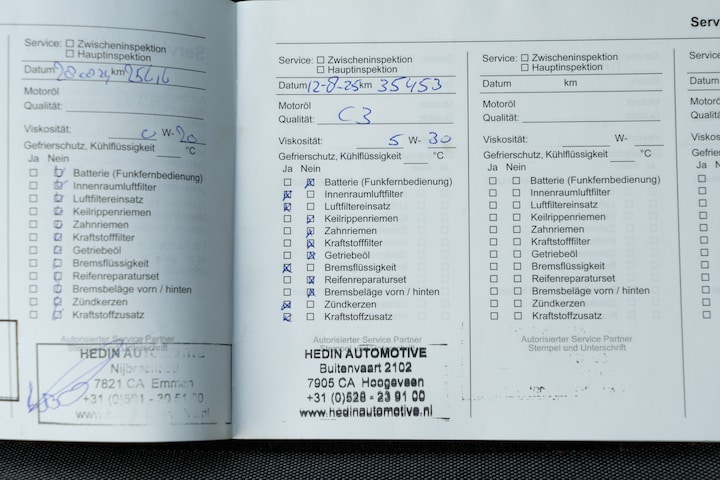 Serv
Service: ☐ Zwischeninspektion
☐ Hauptinspektion
Datum km
Motoröl
Qualität:
Viskosität: 0 W-20
Gefrierschutz, Kühlflüssigkeit °C
Ja Nein
Batterie (Funkfernbedienung)
Innenraumluftfilter
Luftfiltereinsatz
Keilrippenriemen
Zahnriemen
Kraftstofffilter
Getriebeöl
Bremsflüssigkeit
Reifenreparaturset
Bremsbeläge vorn / hinten
Zündkerzen
Kraftstoffzusatz
Autorisierter Service Partner
HEDIN AUTOMOTIVE
7821 CA Emmen
Service: ☐ Zwischeninspektion
☐ Hauptinspektion
Datum 12-8-25 km 35453
Motoröl
Qualität: C3
Viskosität: 5 W- 30
Gefrierschutz, Kühlflüssigkeit °C
Ja Nein
Batterie (Funkfernbedienung)
Innenraumluftfilter
Luftfiltereinsatz
Keilrippenriemen
Zahnriemen
Kraftstofffilter
Getriebeöl
Bremsflüssigkeit
Reifenreparaturset
Bremsbeläge vorn / hinten
Zündkerzen
Kraftstoffzusatz
Autorisierter Service Partner
Stempel und Unterschrift
HEDIN AUTOMOTIVE
Buitenvaart 2102
7905 CA Hoogeveen
+31 (0)528 - 23 91 00
www.hedinautomotive.nl
Service: ☐ Zwischeninspektion
☐ Hauptinspektion
Datum km
Motoröl
Qualität:
Viskosität: W-
Gefrierschutz, Kühlflüssigkeit °C
Ja Nein
Batterie (Funkfernbedienung)
Innenraumluftfilter
Luftfiltereinsatz
Keilrippenriemen
Zahnriemen
Kraftstofffilter
Getriebeöl
Bremsflüssigkeit
Reifenreparaturset
Bremsbeläge vorn / hinten
Zündkerzen
Kraftstoffzusatz
Autorisierter Service Partner
Stempel und Unterschrift
Service:
Datum
Motoröl
Qualität:
Viskosität:
Gefriersch
Ja Nein